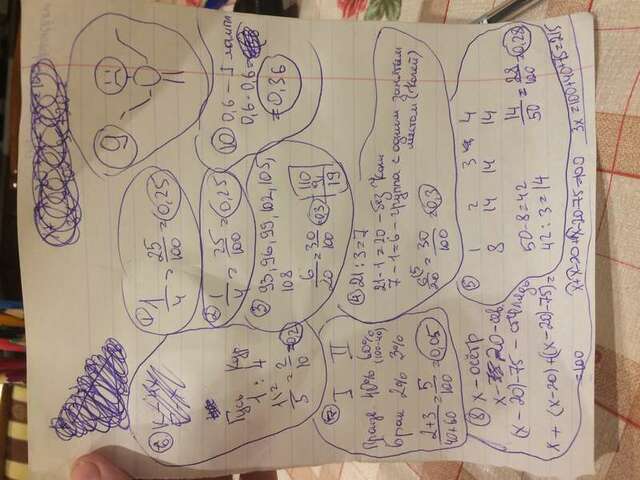 1) 1/4 = 25/100 = 0,25
2) 1/4 = 25/100 = 0,25
3) 93, 96, 99, 102, 105,
108
6/20 = 30/100 = 0,3
110
91
19
4) 21 : 3 = 7
21-1=20 - без Коли
7 - 1 = 6 - группа с одним занятым
местом (Колей)
6/20 = 30/100 = 0,3
5) 1 2 3 4
8 14 14 14
50-8=42
42 : 3 = 14
14/50 = 28/100 = 0,28
6)
Гусь Кур
1 : 4
1/5 = 2/10 = 0,2
7) I II
40% 60%
(100-40)
Брак 2% 3%
2+3/40+60 = 5/100 = 0,05
8) x - осётр
x - 20 - сев.
(x-20)-75 - стерлядь
x + (x-20)+((x-20)-75)=
=100
x+x-20+x-20-75=100
3x=100+40+75=215
9
10) 0,6 - I лампа
0,6 · 0,6 =
= 0,36